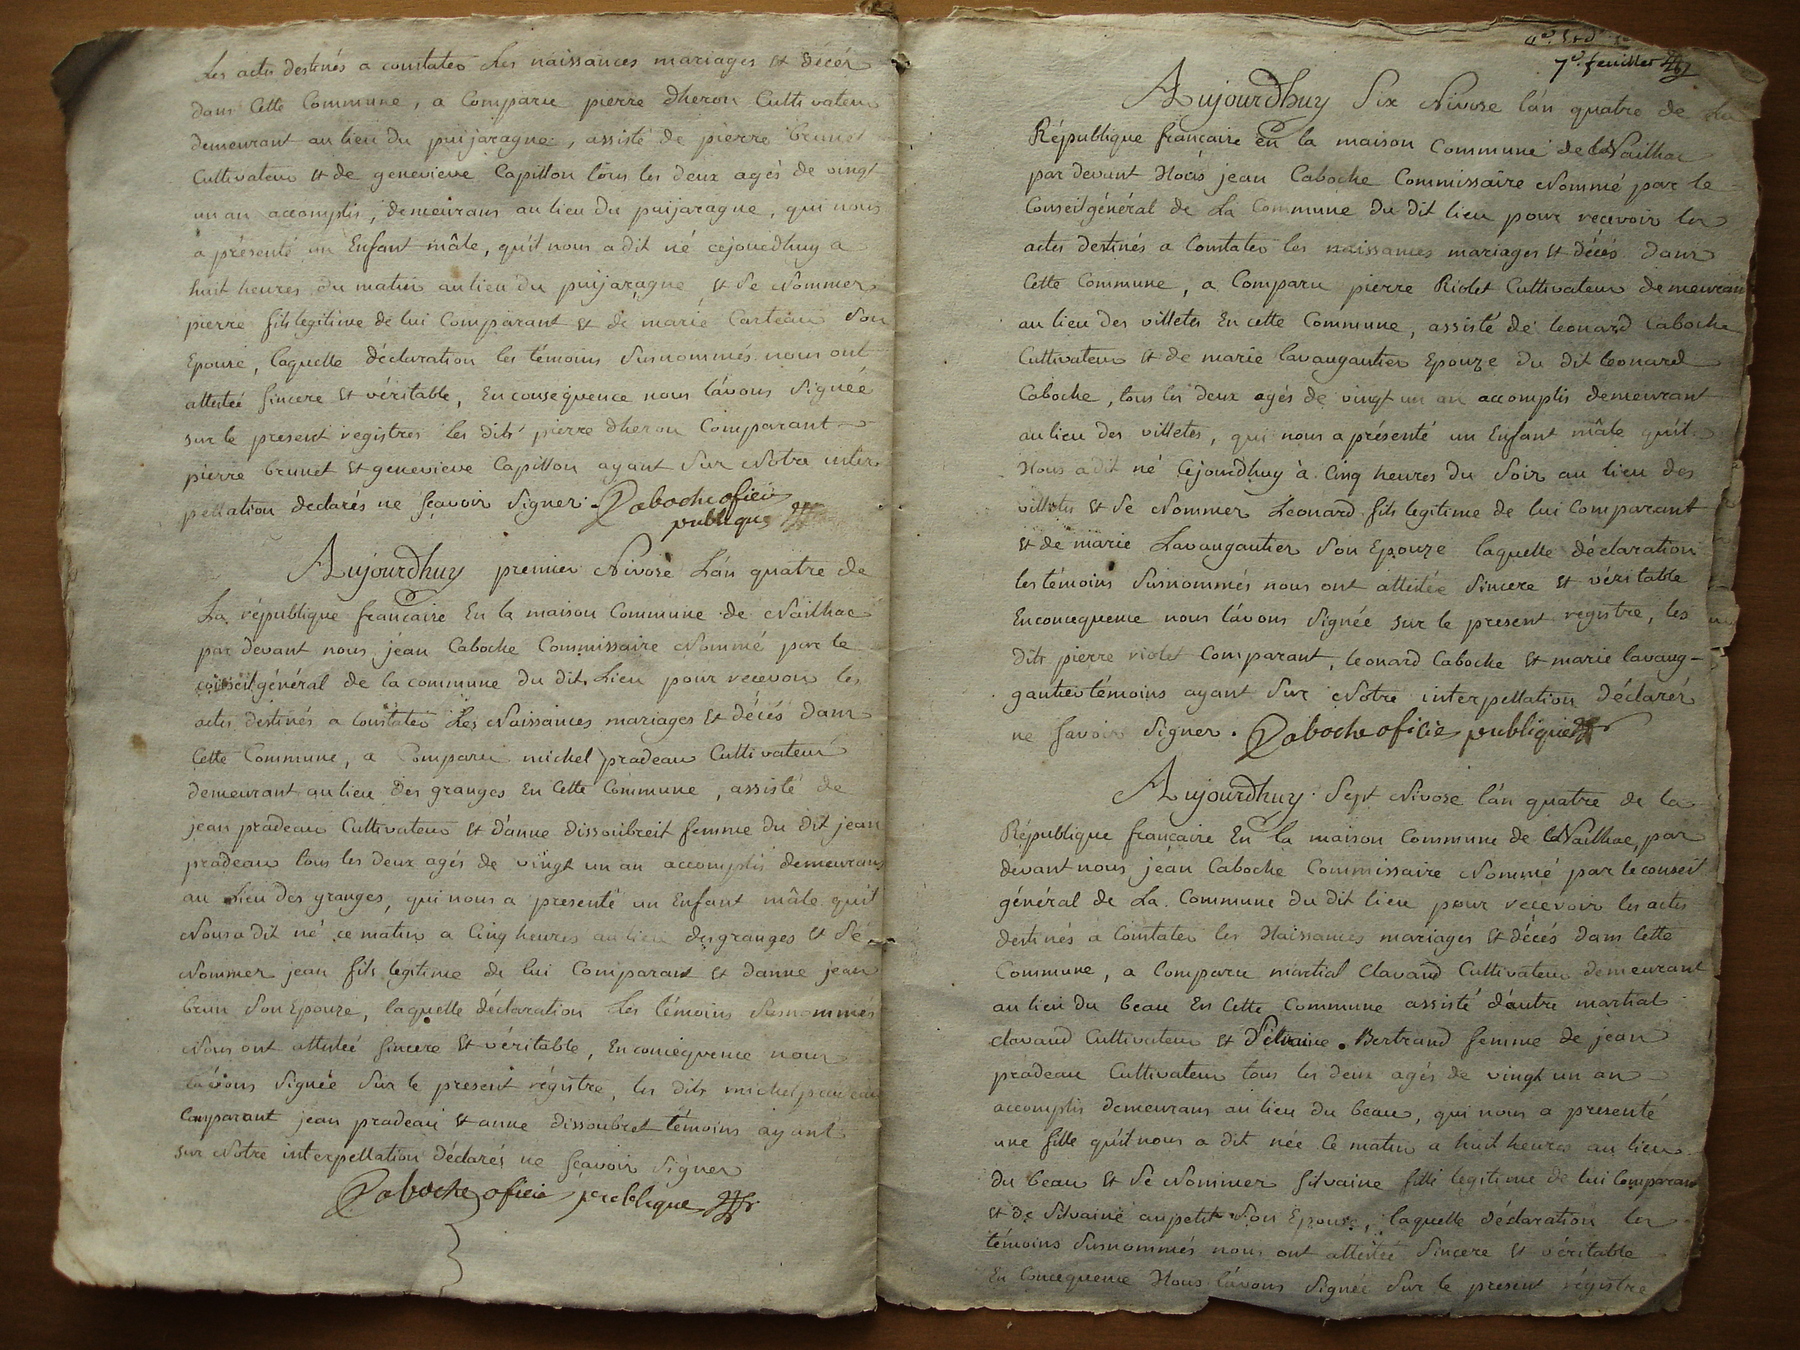 Les actes destinés a constater Les naissances mariages et décès
dans Cette Commune, a Comparu pierre dheron Cultivateur
demeurant au lieu du puijaragne, assisté de pierre brunet
Cultivateur et de genevieve Capillon tous les deux agés de vingt
un an accomplis, demeurans au lieu du puijaragne, qui nous
a présenté un Enfant mâle, qu'il nous a dit né cejourdhuy a
huit heures du matin au lieu du puijaragne et se Nommer
pierre fils legitime de lui Comparant et de marie Carteau Son
Epouse, laquelle déclaration les témoins Susnommés nous ont
attestéé Sincere et véritable, En consequence nous l'avons Signéé
sur le present registres les dits pierre dheron Comparant
pierre brunet et genevieve Capillon ayant Sur Notre inter
pellation declarés ne sçavoir Signer. Caboche oficier
publique
Aujourdhuy premier Nivose L'an quatre de
La république francaise En la maison Commune de Nailhac
par devant nous jean Caboche Commissaire Nommé par le
conseil général de la commune du dit Lieu pour recevoir les
actes destinés a Constater Les Naissances mariages et décés dans
Cette Commune, a Comparu michel pradeau Cultivateur
demeurant au lieu des granges En Cette Commune, assisté de
jean pradeau Cultivateur et d'anne dissoubreit femme du dit jean
pradeau tous les deux agés de vingt un an accomplis demeurans
au Lieu des granges, qui nous a presenté un Enfant mâle qu'il
Nous a dit né ce matin a Cinq heures au lieu des granges et Se
Nommer jean fils legitime de lui Comparant et danne jean
brun Son Epouze, laquelle déclaration Les témoins Susnommés
Nous ont attestéé Sincere et véritable, En conséquence nous
l'avons Signée Sur le present régistre, les dits michel pradeau
Comparant jean pradeau et anne dissoubret témoins ayant
sur Notre interpellation déclarés ne sçavoir Signer
Caboche oficier publique
7e. feuillet
Aujourdhuy Six Nivose l'an quatre de La
République francaise En la maison Commune de Nailhac
par devant Nous jean Caboche Commissaire Nommé par le
Conseil général de La Commune du dit lieu pour recevoir les
actes destinés a Constater les naissances mariages et décés dans
Cette Commune, a Comparu pierre Riolet Cultivateur demeurant
au lieu des villetes En cette Commune, assisté de leonard Caboche
Cultivateur et de marie lavaugautier Epouze du dit leonard
Caboche, tous les deux agés de vingt un an accomplis demeurant
au lieu des villetes, qui nous a présenté un Enfant mâle qu'il
Nous a dit né Cejourdhuy à Cinq heures du Soir au lieu des
villetes et Se Nommer Leonard fils legitime de lui Comparant
et de marie Lavaugautier Son Epouze laquelle déclaration
les témoins Susnommés nous ont attestée Sincere et véritable
En concequence nous l'avons Signée sur le present registre, les
dits pierre riolet Comparant, leonard Caboche et marie lavaug-
gautier témoins ayant Sur Notre interpellation déclarés
ne Savoir Signer. Caboche oficie publique
Aujourdhuy Sept Nivose l'an quatre de la
République francaise En la maison Commune de Nailhac, par
devant nous jean Caboche Commissaire Nommé par le conseil
général de La Commune du dit lieu pour recevoir les actes
destinés a Constater les Naissances mariages et décés dans Cette
Commune, a Comparu martial Clavaud Cultivateur demeurant
au lieu du beau En Cette Commune assisté d'autre martial
clavaud Cultivateur et Silvaine Bertrand femme de jean
pradeau Cultivateur tous les deux agés de vingt un an
accomplis demeurans au lieu du beau, qui nous a presenté
une fille qu'il nous a dit née Ce matin a huit heures au lieu
du beau et Se Nommer Silvaine fille legitime de lui Comparant
et de Silvaine aupetit Son Epouse, laquelle déclaration les
témoins Susnommés nous ont attestée Sincere et véritable
En Concequence Nous l'avons Signée Sur le present régistre